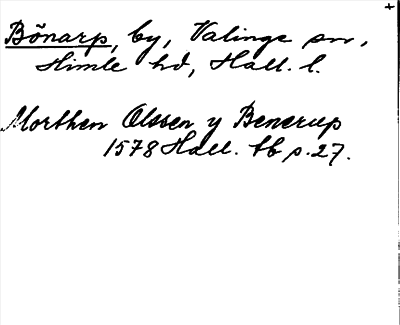 Bönarp, by, Valinge sn,
Himle hd, Hall. l.
Morthen Olssen y Benerup
1578 Hall. tb s. 27.